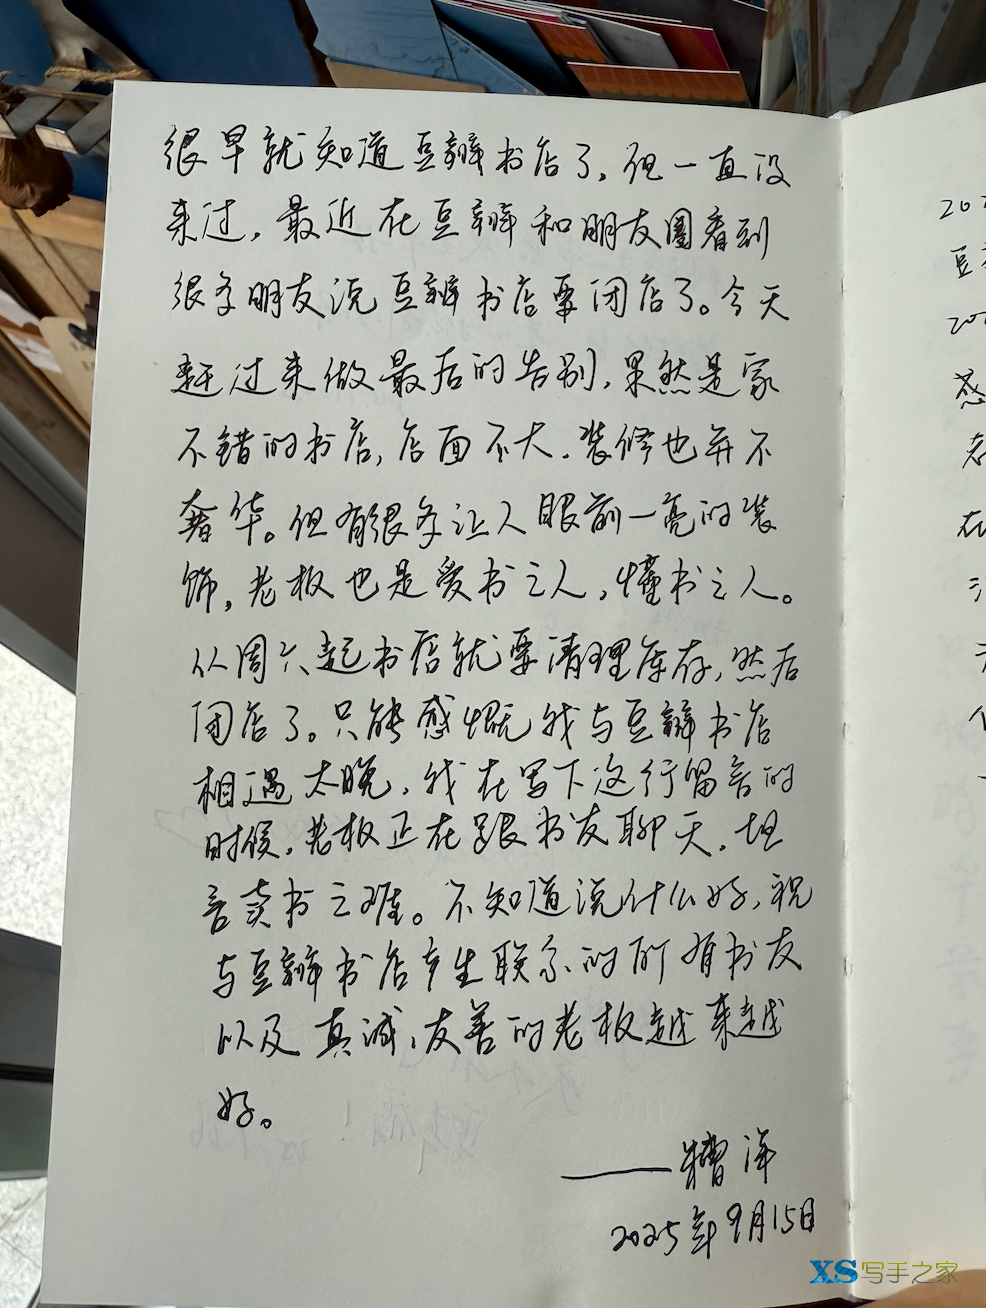 很早就知道豆瓣书店了,但一直没
来过,最近在豆瓣和朋友圈看到
很多朋友说豆瓣书店要闭店了。今天
赶过来做最后的告别,果然是家
不错的书店,店面不大.装修也并不
奢华。但有很多让人眼前一亮的装
饰,老板也是爱书之人,懂书之人。
从周六起书店就要清理库存,然后
闭店了。只能感慨我与豆瓣书店
相遇太晚,我在写下这行留言的
时候,老板正在跟书友聊天,坦
言卖书之难。不知道说什么好,祝
与豆瓣书店产生联系的所有书友
以及真诚,友善的老板越来越
好。
2025年9月15日
XS写手之家
豆
感
老
在